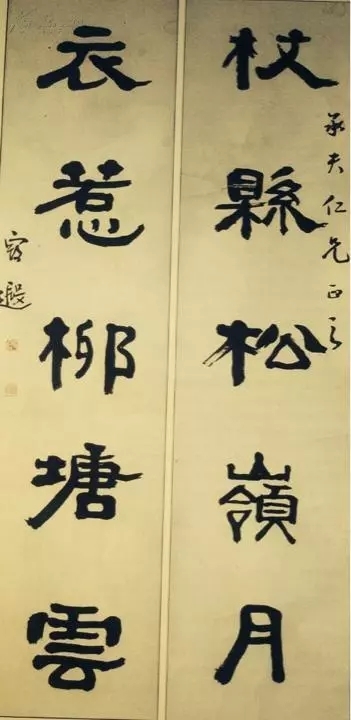 承夫仁兄正之
杖縣松嶺月
衣惹柳塘雲